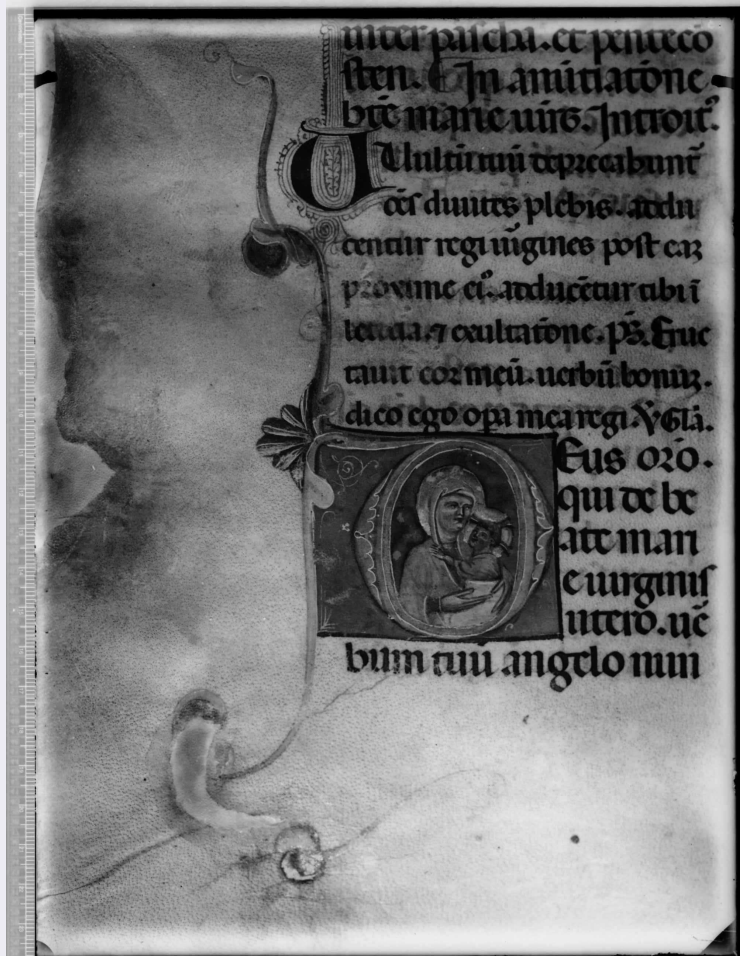 inter pascha. et penteco
sten. In anūtiatōne
btē marie uirg̃. Introit᷒.
Uultū tuū deprecabunt̄
oēs diuites plebis. addu
centur regi uīgines post eaʒ
proxime ei᷒. adducētur tibi ī
leticia ⁊ exultatōne. p̄s. Eruc
tauit cor meū. uerbū bonuʒ.
dico ego opa mea regi. V̄ Glā.
Deus orō.
qui de be
ate mari
e uirginis
utero. uē
bum tuū angelo nun